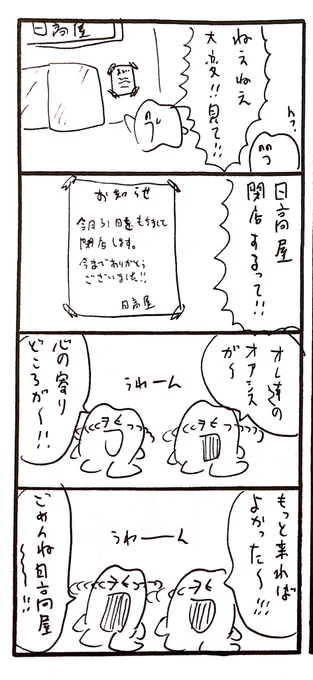 ねえねえ
大変!!見て!!
ん?
日高屋
日高屋
閉店するって!!
お知らせ
今月31日をもちまして
閉店します。
今までありがとう
ございました!!
日高屋
オレ達の
オアシス
が〜
うわーん
心の寄り
どころが〜!!
もっと来れば
よかった〜!!!
うわーん
ごめんね日高屋
〜!!